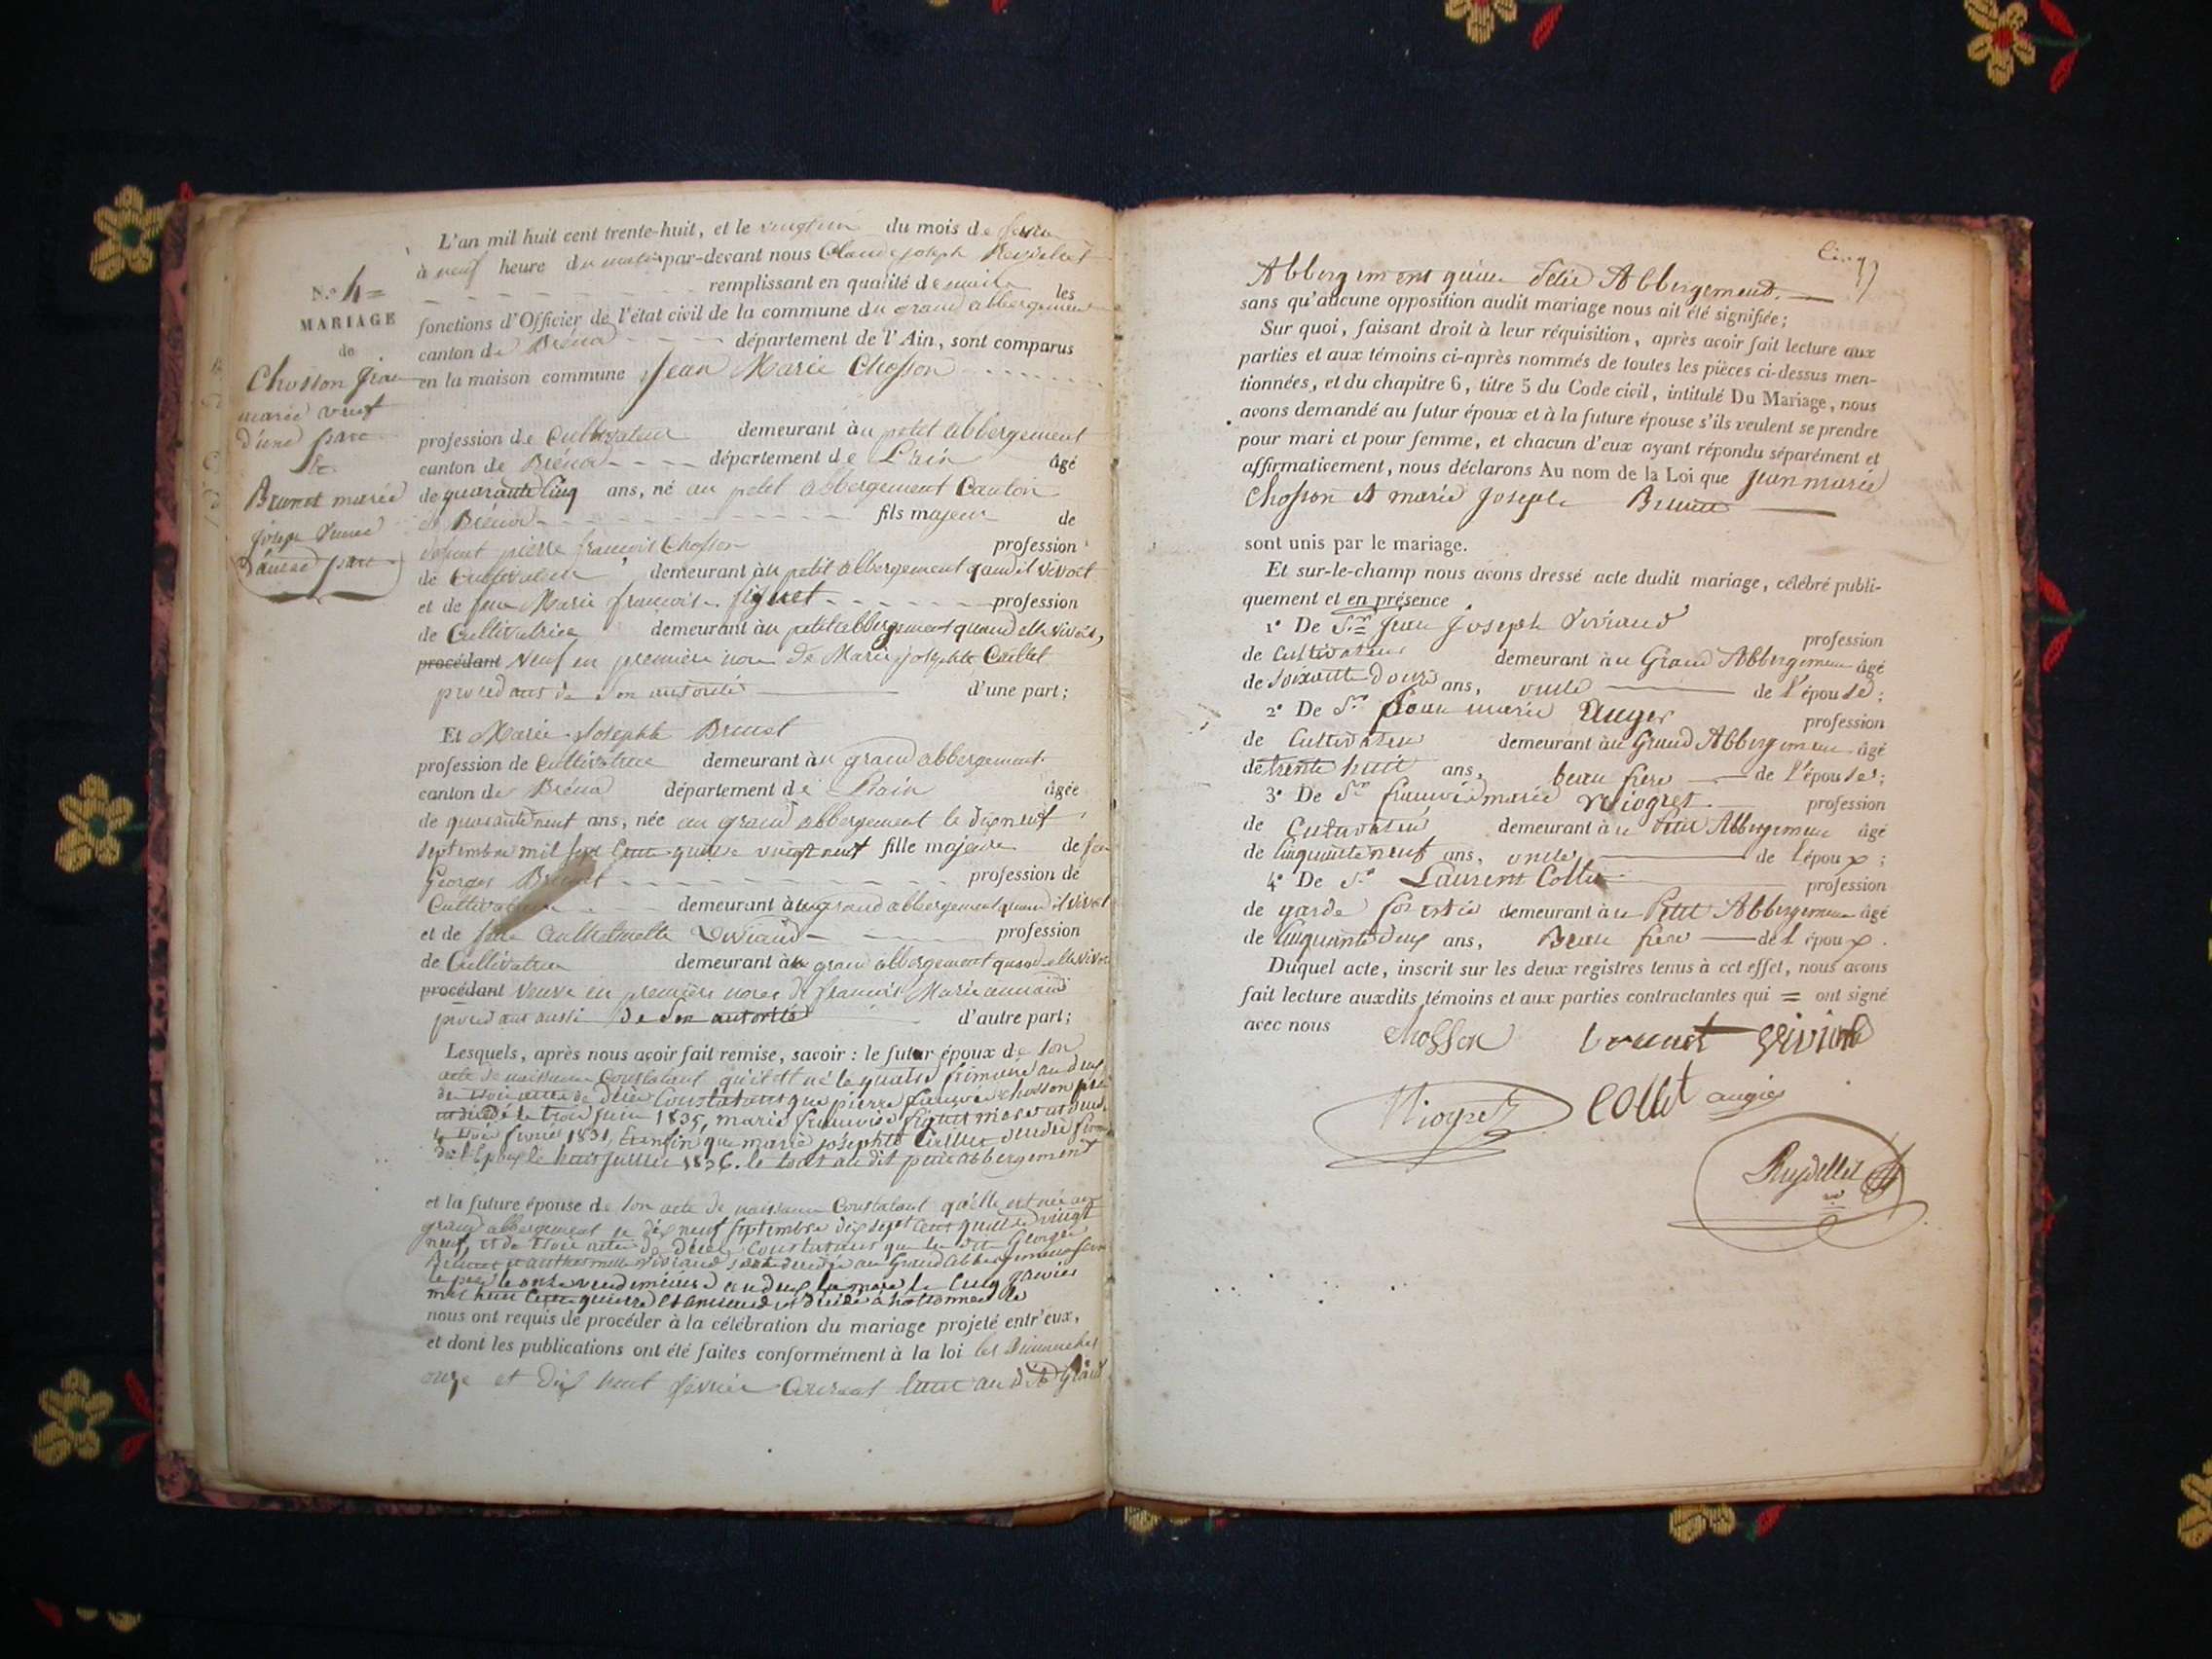 N.o 4 =
MARIAGE
de
Chosson Jean
marie veuf
d'une part
&
Brunet marie
joseph veuve
d'autre part
L'an mil huit cent trente-huit, et le du mois de
à neuf heure du matin par-devant nous Claude joseph
remplissant en qualité de maire les
fonctions d'Officier de l'état civil de la commune du grand abbergement
canton de Brénod département de l'Ain, sont comparus
en la maison commune Jean Marie Chosson
profession de Cultivateur demeurant au petit abbergement
canton de Brénod département de L'ain âgé
de quarante cinq ans, né au petit abbergement Canton
de Brénod fils majeur de
défunt pierre françois Chosson profession
de Cultivateur demeurant au petit abbergement quand il vivoit
et de feue Marie françoise profession
de Cultivatrice demeurant au petit abbergement quand elle vivoit,
procédant Veuf en première noce de Marie josephte Collet
procédant de son autorité d'une part;
Et Marie Josephte Brunet
profession de Cultivatrice demeurant au grand abbergement
canton de Brénod département de L'ain âgée
de quarante neuf ans, née au grand abbergement le dix neuf
septembre mil sept Cent quatre vingt neuf fille majeure de feu
Georges Brunet profession de
Cultivateur demeurant au grand abbergement quand il vivoit
et de feue Viviand profession
de Cultivatrice demeurant au grand abbergement quand elle vivoit
procédant Veuve en première noces de françois Marie
procédant aussi de son autorité d'autre part;
Lesquels, après nous avoir fait remise, savoir : le futur époux de son
acte de naissance Constatant qu'il est né le quatre frimaire an deux
de trois actes de décès Constatant que pierre françois chosson père
est décédé le trois juin 1835, marie françoise mère
le trois février 1831, Et enfin que marie josephte Collet
de l'Epoux le huit juillet 1836. le tout au dit petit abbergement
et la future épouse de son acte de naissance Constatant qu'elle est née au
grand abbergement le dix neuf septembre dix sept cent quatre vingt
neuf, et de trois actes de décès Constatant que le dit George
Brunet et Viviand sont décédés au Grand abbergement
le père le onze vendemiaire an la mère le Cinq janvier
mil huit Cent quatre et
nous ont requis de procéder à la célébration du mariage projeté entr'eux,
et dont les publications ont été faites conformément à la loi les Dimanches
onze et dix huit février Courant tant au dit Grand
Abbergement qu'au Petit Abbergement.
sans qu'aucune opposition audit mariage nous ait été signifiée;
Sur quoi, faisant droit à leur réquisition, après avoir fait lecture aux
parties et aux témoins ci-après nommés de toutes les pièces ci-dessus men-
tionnées, et du chapitre 6, titre 5 du Code civil, intitulé Du Mariage, nous
avons demandé au futur époux et à la future épouse s'ils veulent se prendre
pour mari et pour femme, et chacun d'eux ayant répondu séparément et
affirmativement, nous déclarons Au nom de la Loi que Jean marie
Chosson et marie Joseph Brunet
sont unis par le mariage.
Et sur-le-champ nous avons dressé acte dudit mariage, célébré publi-
quement et en présence
1° De S.r Jean Joseph Viviand
profession
de Cultivateur demeurant au Grand Abbergement âgé
de soixante douze ans, oncle de l'épouse;
2° De S.r Jean marie Auger profession
de Cultivateur demeurant au Grand Abbergement âgé
de trente huit ans, beau frere de l'épouse;
3° De S.r françois marie Niogret profession
de Cultivateur demeurant au Petit Abbergement âgé
de Cinquante neuf ans, oncle de l'époux;
4° De S.r Laurent Collet profession
de garde forestier demeurant au Petit Abbergement âgé
de Cinquante deux ans, Beau frere de l'époux.
Duquel acte, inscrit sur les deux registres tenus à cet effet, nous avons
fait lecture auxdits témoins et aux parties contractantes qui = ont signé
avec nous Chosson brunet
Niogret COllet augier